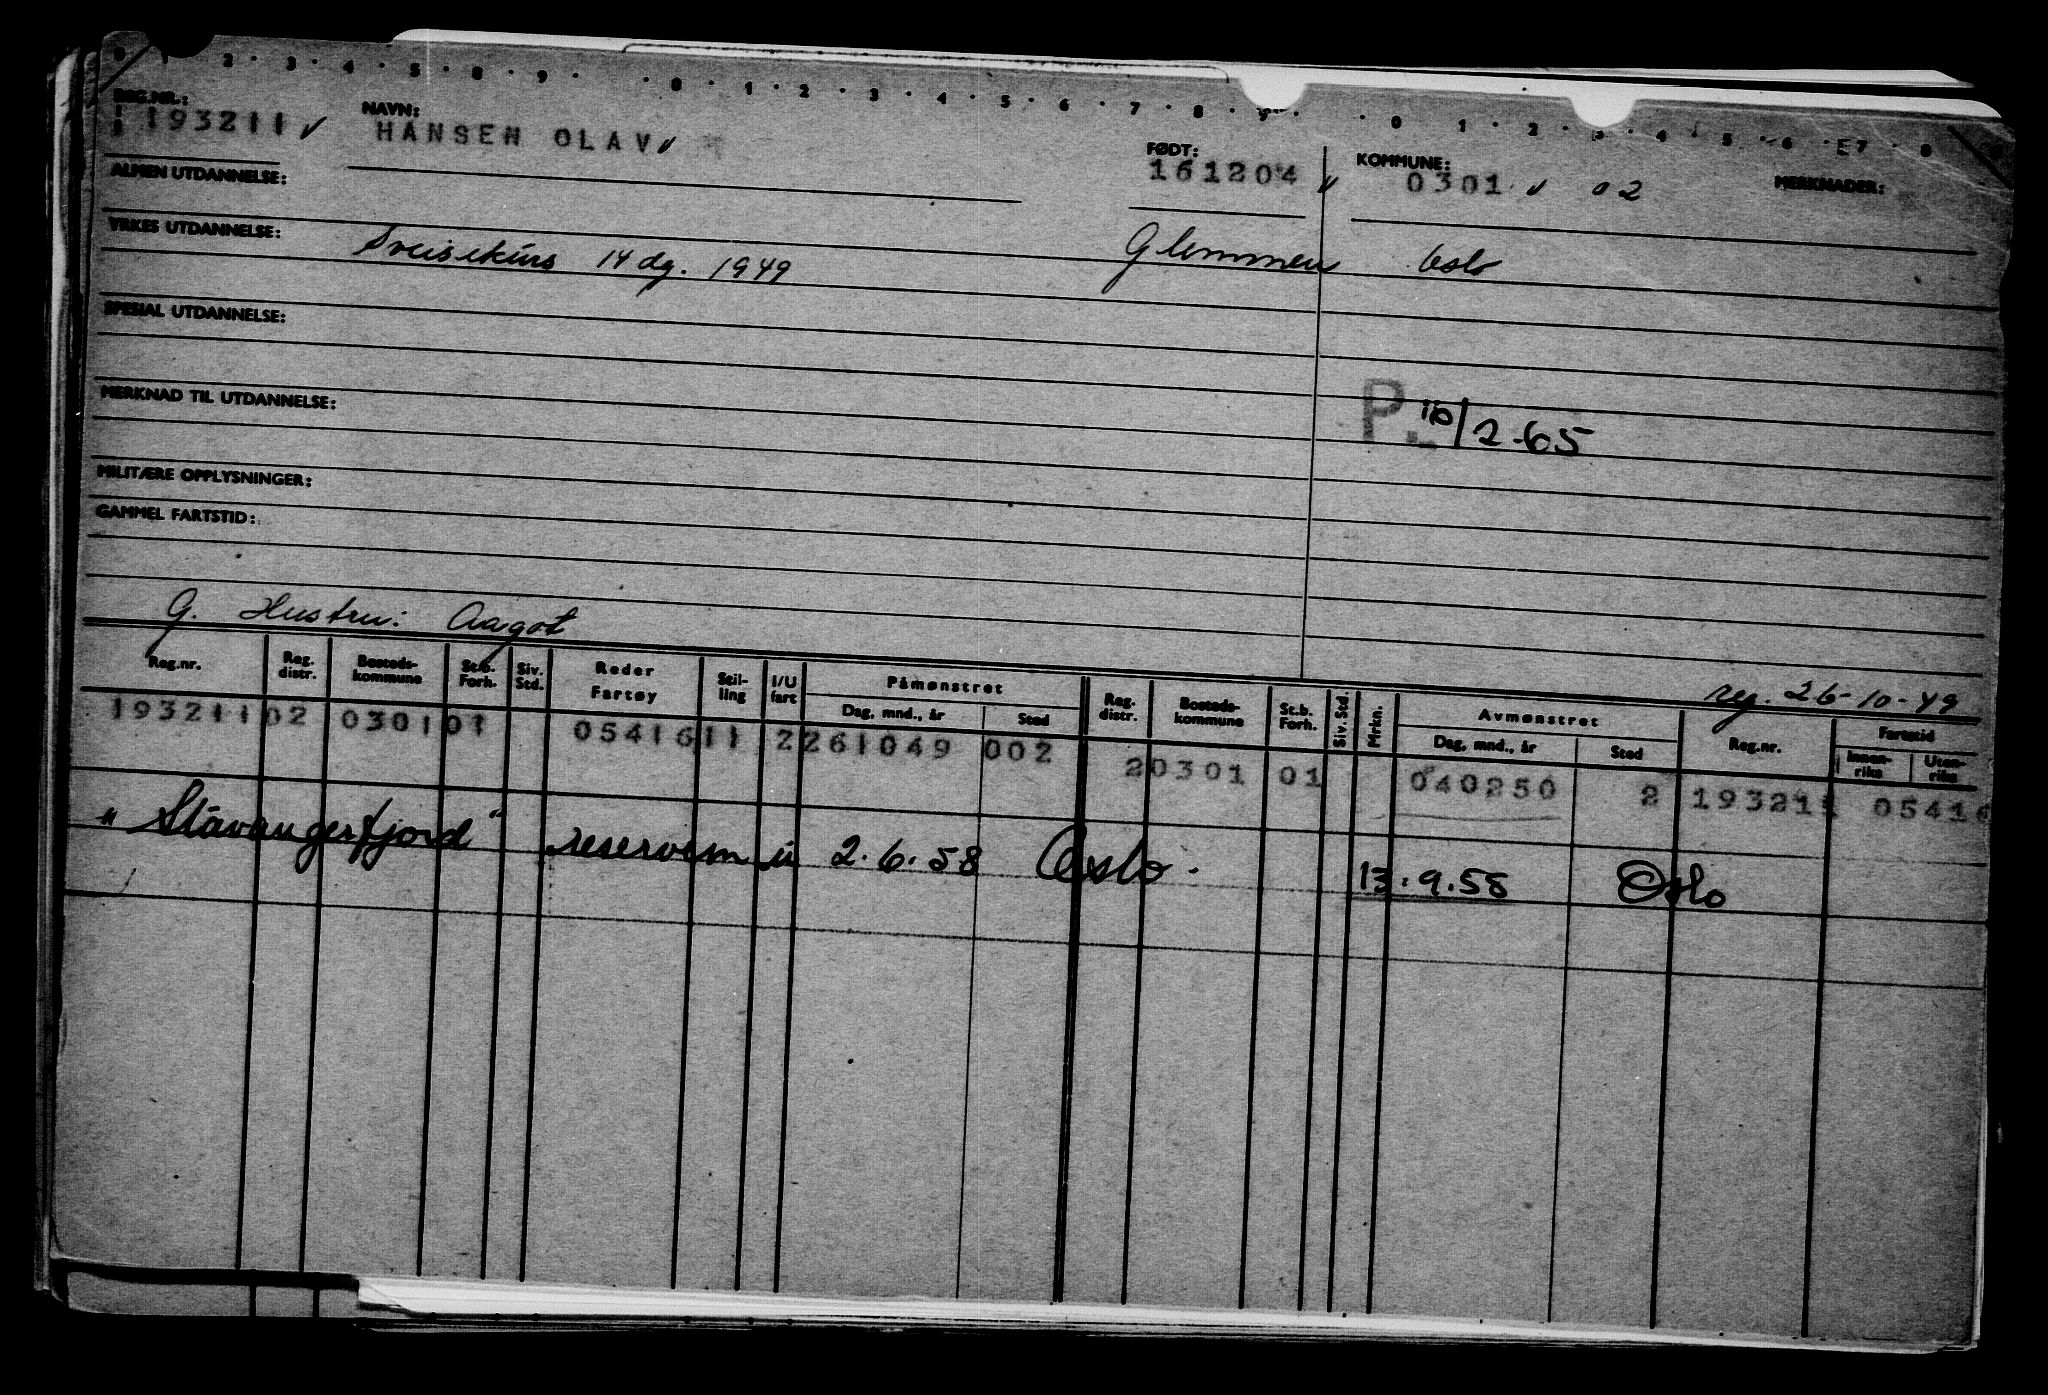 0 1 2 · 3 · 4 · 5 · 8 · 9 · · 0 · 1 · 2 · 3 · 4 · 5 · 6 · 7 · 8 · 9 · · 0 1 · 2 · 3 · 4 · 5 · 6 · 7 · 8
REG.NR.: NAVN: FØDT: KOMMUNE: MERKNADER:
193211 HANSEN OLAV 161204 0301 02
ALMEN UTDANNELSE:
YRKES UTDANNELSE: Sveisekurs 14 dg. 1949 Glemmen Oslo
SPESIAL UTDANNELSE:
MERKNAD TIL UTDANNELSE:
P. /2-65
MILITÆRE OPPLYSNINGER:
GAMMEL FARTSTID:
G. Hustru: Aagot
reg. 26-10-49
Reg.nr. Reg. distr. Bosteds-kommune St.b. Forh. Siv. Std. Reder Fartøy Stil-ling I/U fart Påmønstret Dag, mnd., år Sted Reg. distr. Bosteds-kommune St.b. Forh. Siv. Std. Mrkn. Avmønstret Dag, mnd., år Sted Reg.nr. Fartstid Innen-riks Uten-riks
193211 02 0301 01 05416 11 2 261049 002 2 0301 01 040250 2 193211 05416
"Stavangerfjord" reservem u 2.6.58 Oslo. 13.9.58 Oslo